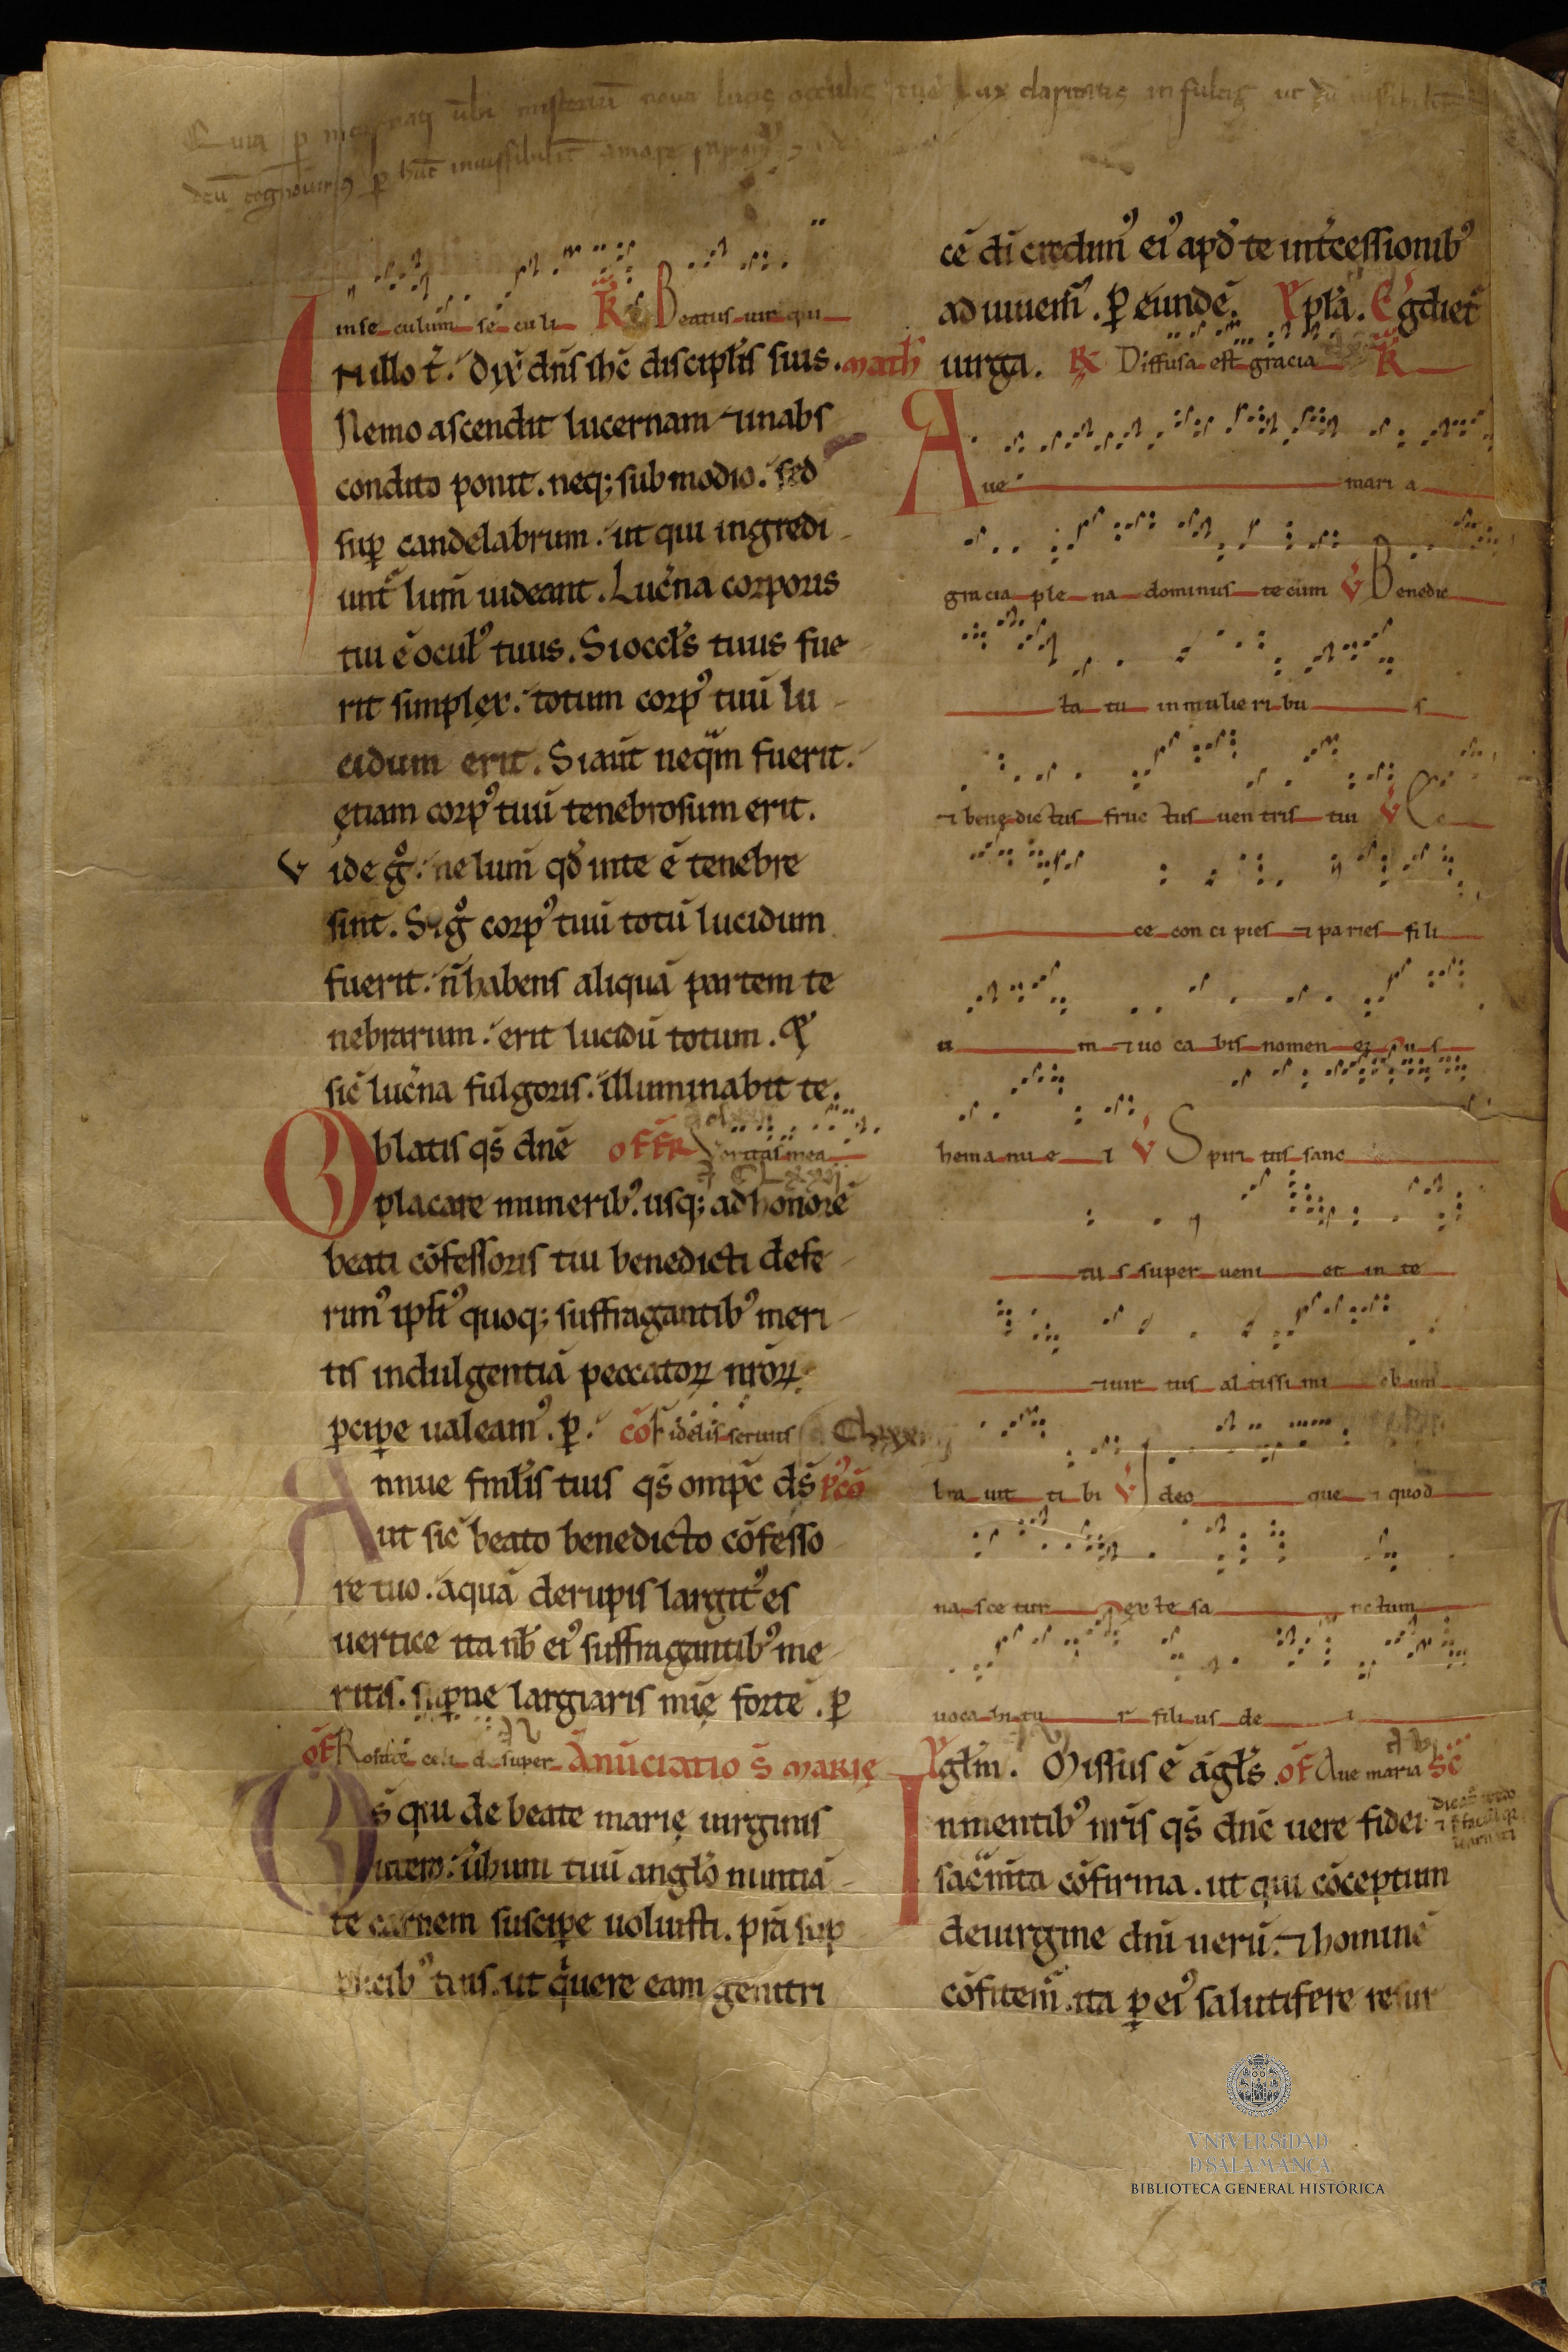 Quia p
misteriū noua lucis
lux claritatis infulsit ut dū
inse culum se culi Beatus uir qui
N illo t̄. Dix̄ dn̄s ihc̄ discipl̄is suis. math
Nemo ascendit lucernam ⁊ inabs
condito ponit. neq; sub modio. sed
sup candelabrum. ut qui ingredi
unt̄ lum̄ uideant. Lucn̄a corporis
tui ē ocul᾿ tuus. Si occl̄s tuus fue
rit simplex. totum corp᾿ tuū lu
cidum erit. Si aūt neq̄m fuerit.
ętiam corp᾿ tuū tenebrosum erit.
V ide gͦ. ne lum̄ qd̄ inte ē tenebre
sint. Si gͦ corp᾿ tuū totū lucidum
fuerit. n̄ habens aliquā partem te
nebrarum. erit lucidū totum. &
sic̄ lucn̄a fulgoris. illuminabit te.
Oblatis qs̄ dn̄e offr̄ Veritas mea
placare munerib᾿. usq; ad honorē
beati cōfessoris tui benedicti defe
rim᾿ ipsi᾿ quoq; suffragantib᾿ meri
tis indulgentiā peccatoꝝ nr̄oꝝ
pcipe ualeam᾿. p. cō Fidelis seruus
Annue fml̄is tuis qs̄ omp̄c ds̄ p᾿cō
ut sic̄ beato benedicto cōfesso
re tuo. aquā derupis largit᾿ es
uertice ita nb̄ ei᾿ suffragantib᾿ me
ritis. supne largiaris mię fortē. p
of Rorate celi desuper Anunciatio s̄ marię
Ds̄ qui de beate marię uirginis
utero. ūbum tuū anglo nuntiā
te carnem suscipe uoluisti. pr̄a sup
plicib᾿ tuis. ut q̄ uere eam genitri
cē di credim᾿ ei᾿ apd̄ te int̄cessionib᾿
adiuuem̄. p eundē. pl̄a. Egdiet̄
uirga. R Diffusa est gracia
Aue mari a
gracia ple na dominus tecum V Benedic
ta tu in mulie ri bu s
⁊ benę dic tus fruc tus uen tris tui V Ec
ce con ci pies ⁊ pa ries fili
u m ⁊ uo ca bis nomen
hema nu e l V Spiri tus sanc
tu s super ueni et in te
⁊ uir tus al tissi mi obum
bra uit ti bi V Ideo que ⁊ quod
na sce tur ex te sa nctum
uoca bi tu r fili us de i
gl̄m. Missus ē āgl̄s. of Aue maria sc̄
In mentib᾿ nr̄is qs̄ dn̄e uere fidei
sac̄m̄ta cōfirma. ut qui cōceptum
deuirgine dm̄ uerū. ⁊ hominē
cōfitem̄. ita p ei᾿ salutifere resur
VNiVERSiDAD
D SALAMANCA
BIBLIOTECA GENERAL HISTÓRICA